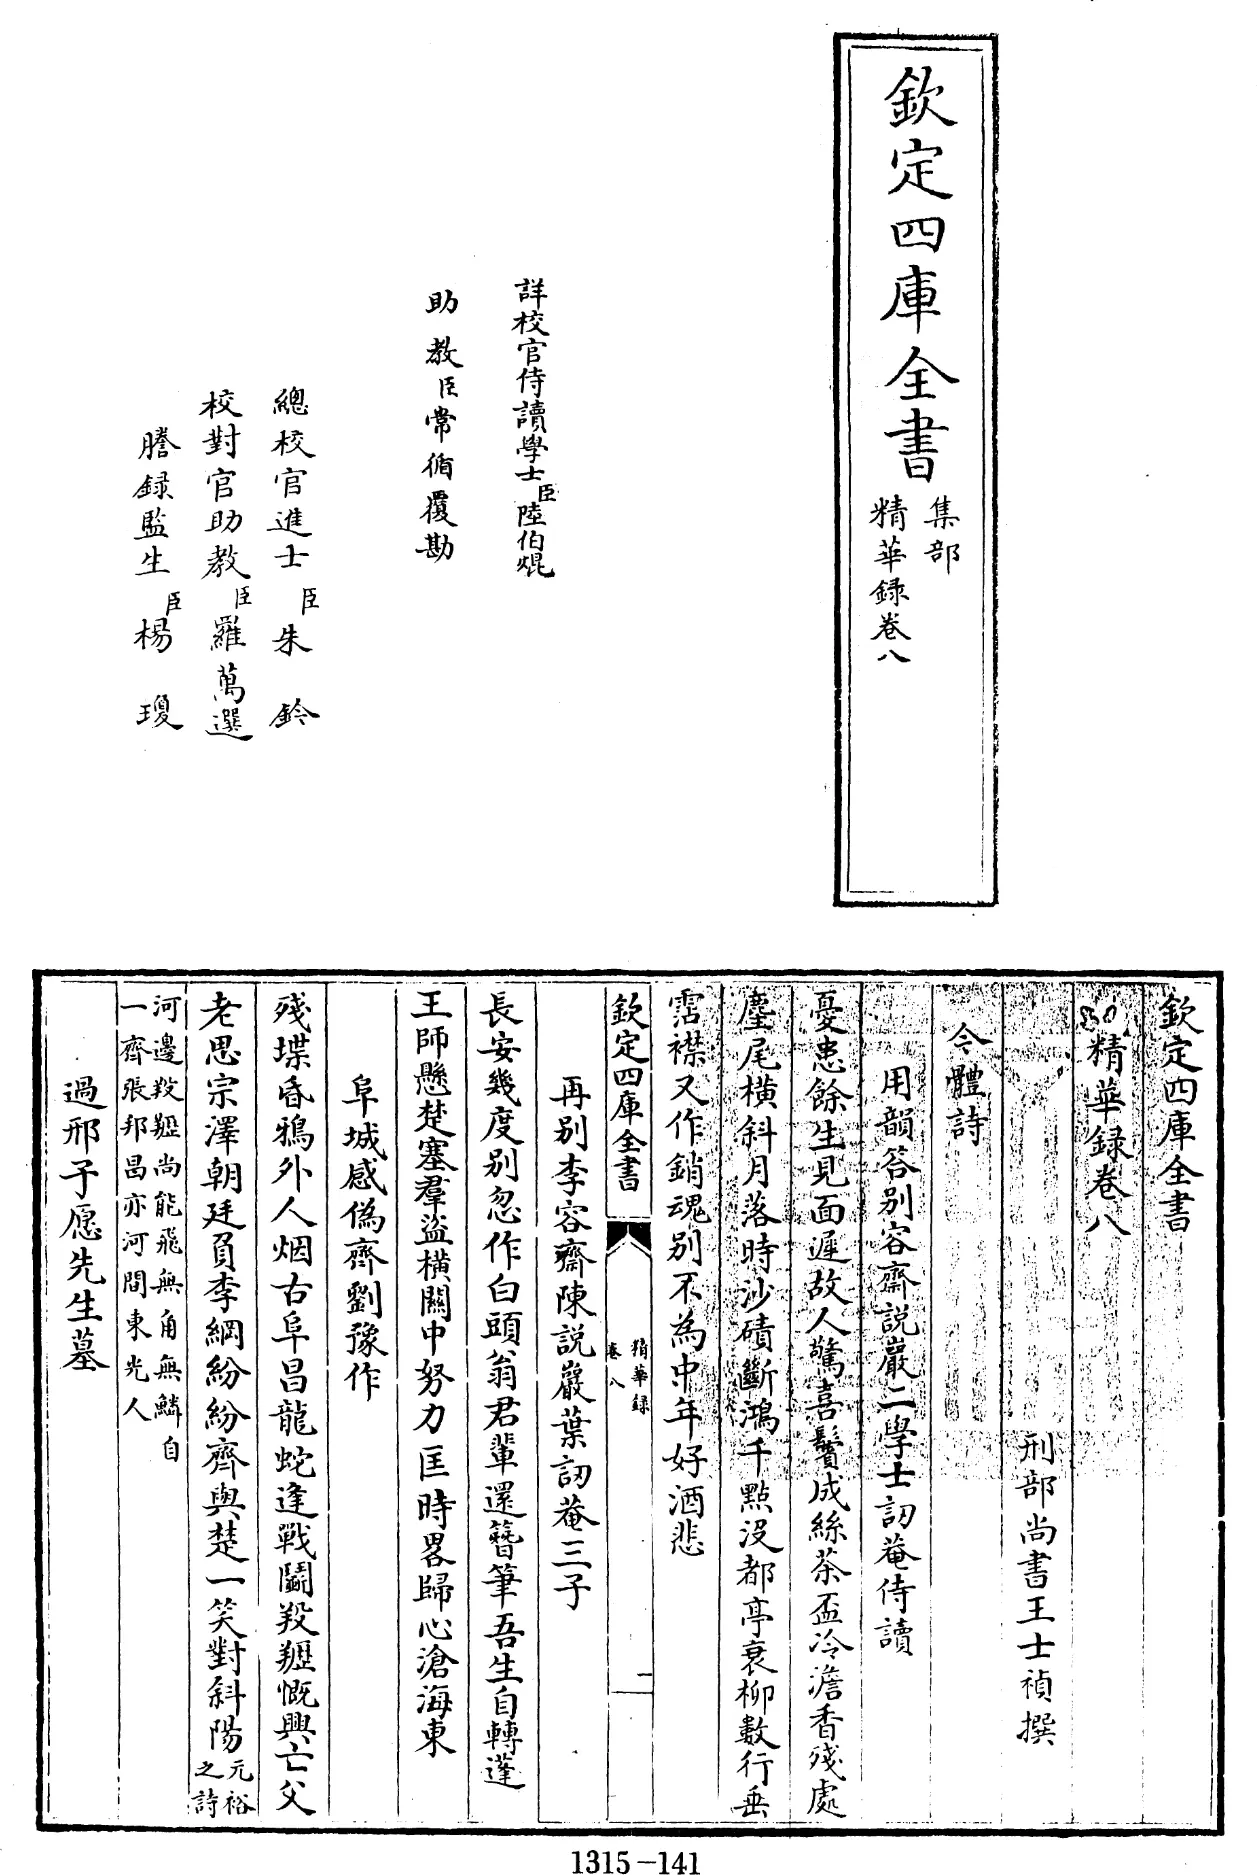 欽定四庫全書
集部
精華録卷八
詳校官侍讀學士臣陸伯焜
助教臣常循覆勘
總校官進士臣朱鈐
校對官助教臣羅萬選
謄録監生臣楊瓊
欽定四庫全書
精華録卷八
刑部尚書王士禎撰
今體詩
用韻答别容齋説巖二學士訒菴侍讀
憂患餘生見面遲故人驚喜鬢成絲茶盃冷澹香殘處
麈尾横斜月落時沙磧斷鴻千點没都亭衰柳數行垂
霑襟又作銷魂别不為中年好酒悲
欽定四庫全書
精華録
卷八
一
再别李容齋陳説巖葉訒菴三子
長安幾度别忽作白頭翁君輩還簪筆吾生自轉蓬
王師懸楚塞羣盜横關中努力匡時畧歸心滄海東
阜城感偽齊劉豫作
殘堞昏鴉外人烟古阜昌龍蛇逢戰鬭羖䍽慨興亡父
老思宗澤朝廷負李綱紛紛齊與楚一笑對斜陽元裕
之詩
河邊羖䍽尚能飛無角無鱗自
一齊張邦昌亦河間東光人
過邢子愿先生墓
1315-141